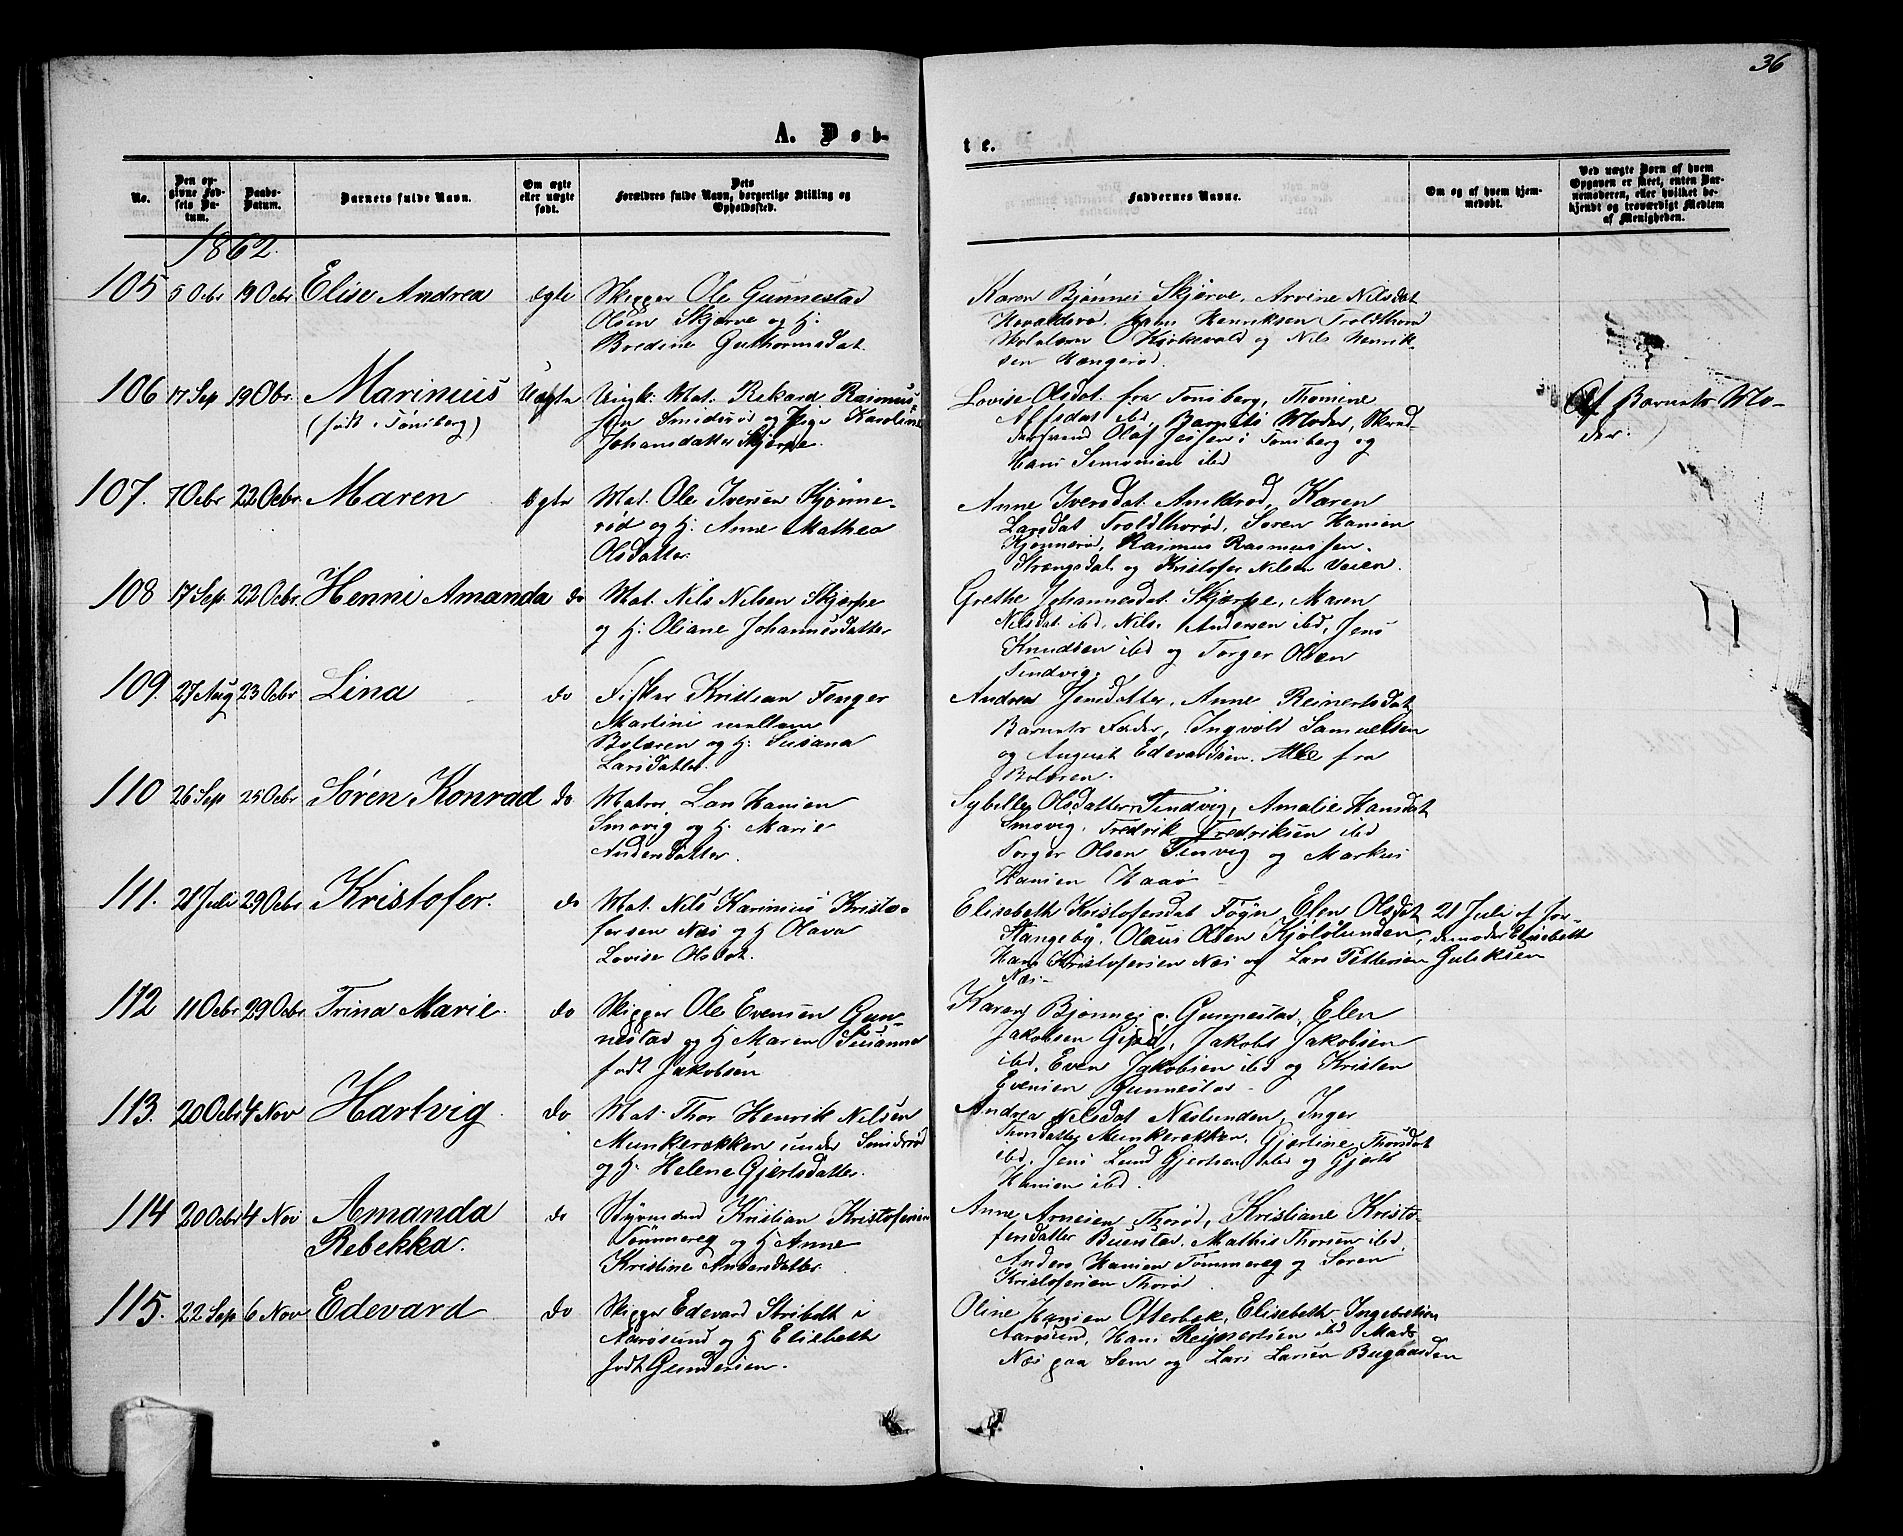 36
A. Døb-
te.
No.
Den op-
givne Fød-
sels Da-
tum.
Daabs-
Datum.
Barnets fulde Navn.
Om ægte
eller uægte
født.
Dets
Forældres fulde Navn, borgerlige Stilling og
Opholdsted.
Faddernes Navne.
Om og af hvem hjem-
medøbt.
Ved uægte Børn af hvem
Opgaven er skeet, enten Bar-
nemoderen, eller hvilket be-
kjendt og troværdigt Medlem
af Menigheden.
1862.
105 5 Octbr 19 Octbr Elise Andrea ægte Skipper Ole Gunnestad
Olsen Skjærve og H.
Bredine Guthormsdat.
Karen Bjønnes Skjerve, Arvine Nilsdat
Henriksen Troldthorød
Kirkevold og Nils Henrik-
sen
106 17 Sep 19 Obr. Marinius Uægte Ungk: Mat. Rekard Rasmus-
(født i Tønsberg) sen Smidsrød og Pige Karoline
Johansdatter Skjerpe.
Lovise Olsdat. fra Tønsberg, Thomine
ibd, Barnets Moder, Skred-
dersvend Olaf Jessen i Tønsberg og
Hans Simonsen ibd
Af Barnets Mo-
der.
107. 7 Octbr 22 Octbr Maren ægte Mat. Ole Iversen Kjønne-
rød og H. Anne Mathea
Olsdatter.
Anne Iversdat. Karen
Larsdat Troldthorød, Søren Hansen
Kjønnerød, Rasmus Rasmussen
og Kristofer Nilsen Veien.
108 17 Sep. 22 Octbr. Henni Amanda do Mat. Nils Nilsen Skjerpe
og H: Oliane Johannesdatter
Grethe Johannesdat. Skjerpe, Maren
Nilsdat. ibd, Nils Andersen ibd, Jens
Knudsen ibd og Torger Olsen
Tendvig.
109. 27 Aug 23 Octbr Lina do Fisker Kristian Fenger
Martini mellem
Bolæren og H: Susana
Larsdatter.
Andrea Jensdatter, Anne Reinertsdat
Barnets Fader, Ingvold Samuelsen
og August Edevardsen. Alle fra
Bolæren.
110 26 Sep 25 Octbr Søren Konrad do Matros Lars Hansen
Smøvig og H. Marie
Andersdatter.
Sybille Olsdatter Tendvig, Amalie Hansdat
Smøvig, Fredrik Fredriksen ibd
Torger Olsen Tenvig og Markus
Hansen Haaø
111. 21 Juli 29 Octbr Kristofer. do Mat. Nils Karinius Kristo-
fersen Næs og H Olava
Lovise Olsdat.
Elisabeth Kristofersdat Føyn, Elen Olsdat
Stangeby, Olaus Olsen Kjølølunden,
Hans Kristofersen Næs og Lars Pettersen
Næs.
21 Juli af Jor-
demoder Elisabeth
Gulliksen
112 11 Octbr 29 Octbr. Trina Marie. do Skipper Ole Evensen Gun-
nestad og H Maren Susanne
født Jakobsen
Karen Bjønnes p. Gunnestad, Elen
Jakobsen Gipø, Jakob Jakobsen
ibd, Even Jakobsen ibd og Kristen
Evensen Gunnestad
113. 20 Octbr 4 Nov Hartvig. do Mat. Thor Henrik Nilsen
Munkerækken under Smidsrød
og H. Helene Gjertsdatter.
Andrea Nilsdat Næslunden, Inger
Thorsdatter Munkerækken, Gjertine Thorsdat
ibd. Jens Lund Gjertsen ibd og Gjert
Hansen ibd.
114 20 Octbr 4 Nov Amanda
Rebekka. do Styrmand Kristian Kristofersen
Tømmereg og H Anne
Kristine Andersdatter.
Anne Arnesen Thorød, Kristiane Kristo-
fersdatter Buerstad. Mathis Thorsen ibd,
Anders Hansen Tømmereg og Søren
Kristofersen Thorød
115. 22 Sep 6 Nov Edevard do Skipper Edevard Stribolt i
Aarøsund og H Elisbeth
født Gundersen.
Oline Hansen Ofterbek, Elisabeth Ingebretsen
Aarøsund, Hans Reinertsen ibd Mads
Næs paa Sem og Lars Larsen Bugaarden